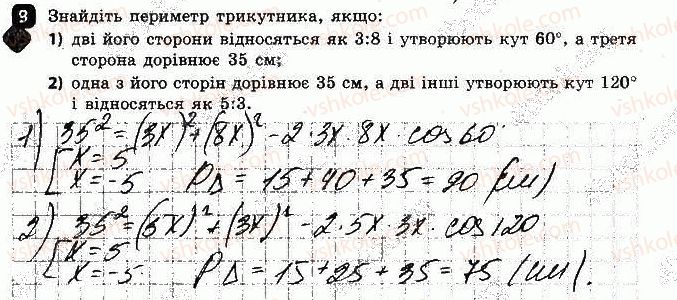 9 Знайдіть периметр трикутника, якщо:
1) дві його сторони відносяться як 3:8 і утворюють кут 60°, а третя
сторона дорівнює 35 см;
2) одна з його сторін дорівнює 35 см, а дві інші утворюють кут 120°
і відносяться як 5:3.
1) 35² = (3x)² + (8x)² - 2·3x·8x·cos60·
[x = 5
x = -5 P∆ = 15 + 40 + 35 = 90 (см)
2) 35² = (5x)² + (3x)² - 2·5x·3x·cos120
[x = 5
x = -5 P∆ = 15 + 25 + 35 = 75 (см).